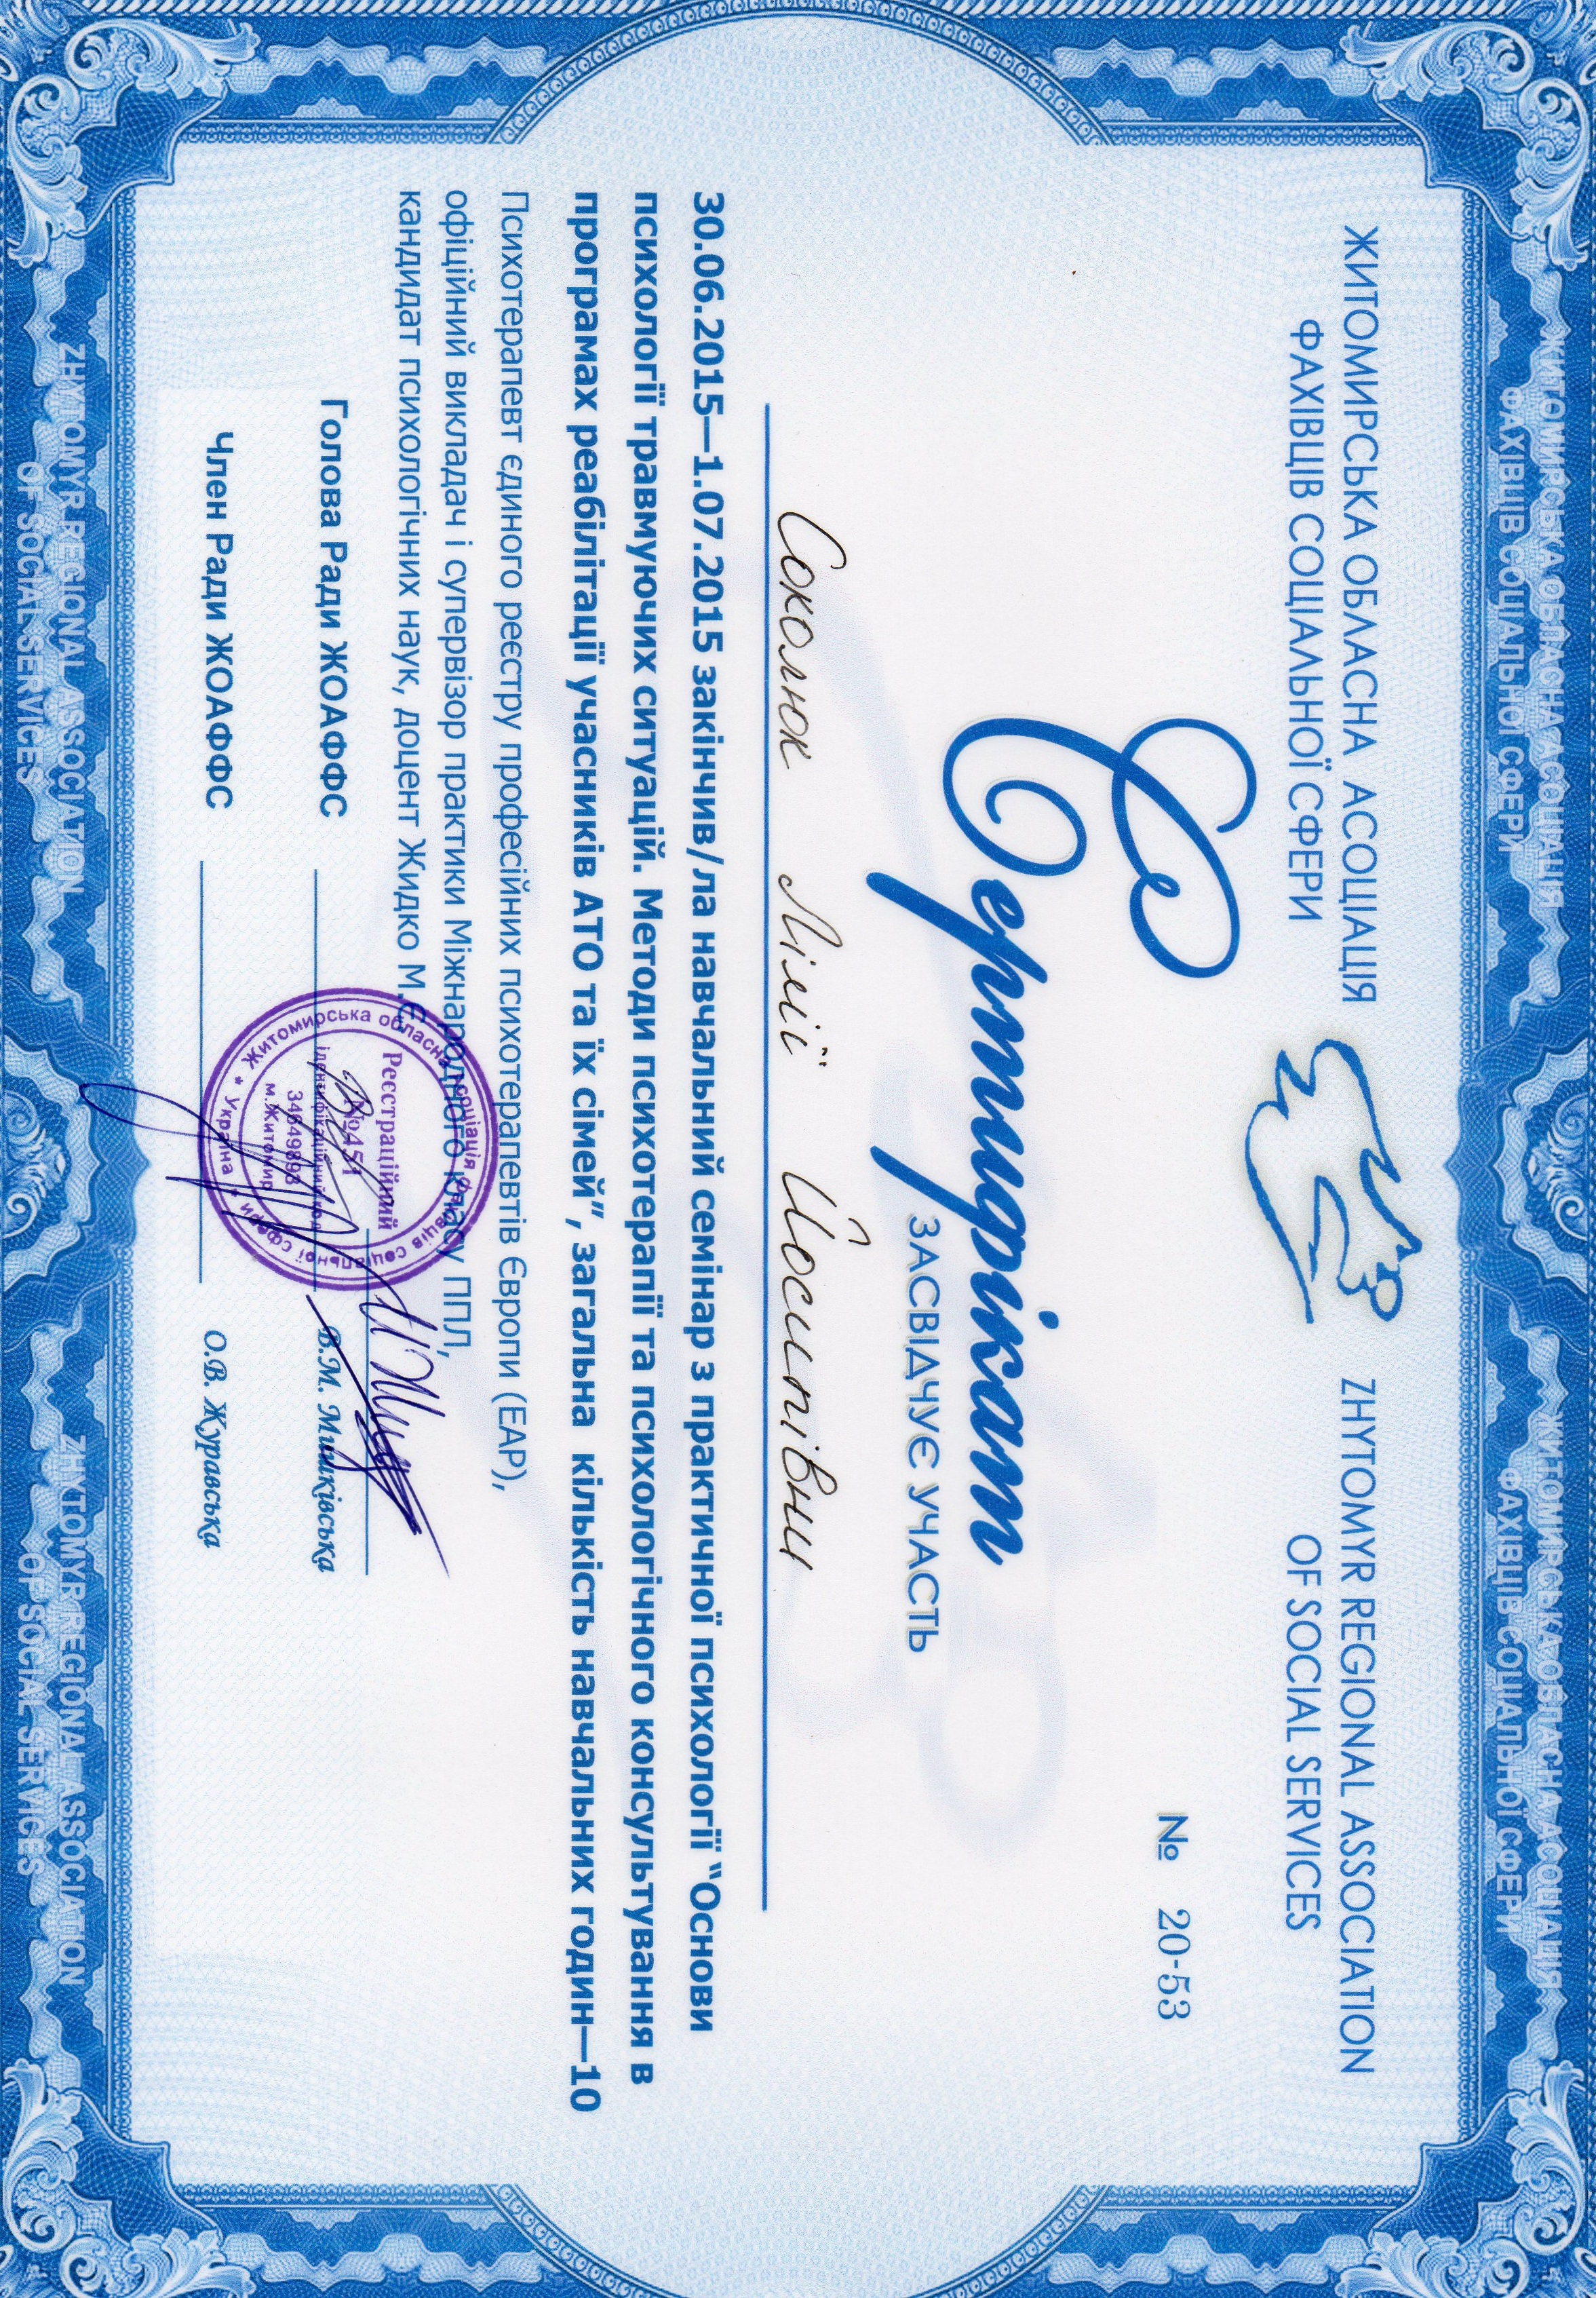 ЖИТОМИРСЬКА ОБЛАСНА АСОЦІАЦІЯ
ФАХІВЦІВ СОЦІАЛЬНОЇ СФЕРИ
ЖИТОМИРСЬКА ОБЛАСНА АСОЦІАЦІЯ
ФАХІВЦІВ СОЦІАЛЬНОЇ СФЕРИ
ЖИТОМИРСЬКА ОБЛАСНА АСОЦІАЦІЯ
ФАХІВЦІВ СОЦІАЛЬНОЇ СФЕРИ
ZHYTOMYR REGIONAL ASSOCIATION
OF SOCIAL SERVICES
№ 20-53
Сертифікат
ЗАСВІДЧУЄ УЧАСТЬ
Соколюк Лілії Йосипівни
30.06.2015—1.07.2015 закінчив/ла навчальний семінар з практичної психології “Основи
психології травмуючих ситуацій. Методи психотерапії та психологічного консультування в
програмах реабілітації учасників АТО та їх сімей”, загальна кількість навчальних годин—10
Психотерапевт єдиного реєстру професійних психотерапевтів Європи (ЕАР),
офіційний викладач і супервізор практики Міжнародного класу ППЛ,
кандидат психологічних наук, доцент Жидко М.Є.
Голова Ради ЖОАФФС
В.М. Мишківська
Член Ради ЖОАФФС
О.В. Журавська
Житомирська обласна асоціація фахівців соціальної сфери
Реєстраційний
№451
ідентифікаційний код
34649893
м.Житомир
* Україна *
ZHYTOMYR REGIONAL ASSOCIATION
OF SOCIAL SERVICES
ZHYTOMYR REGIONAL ASSOCIATION
OF SOCIAL SERVICES